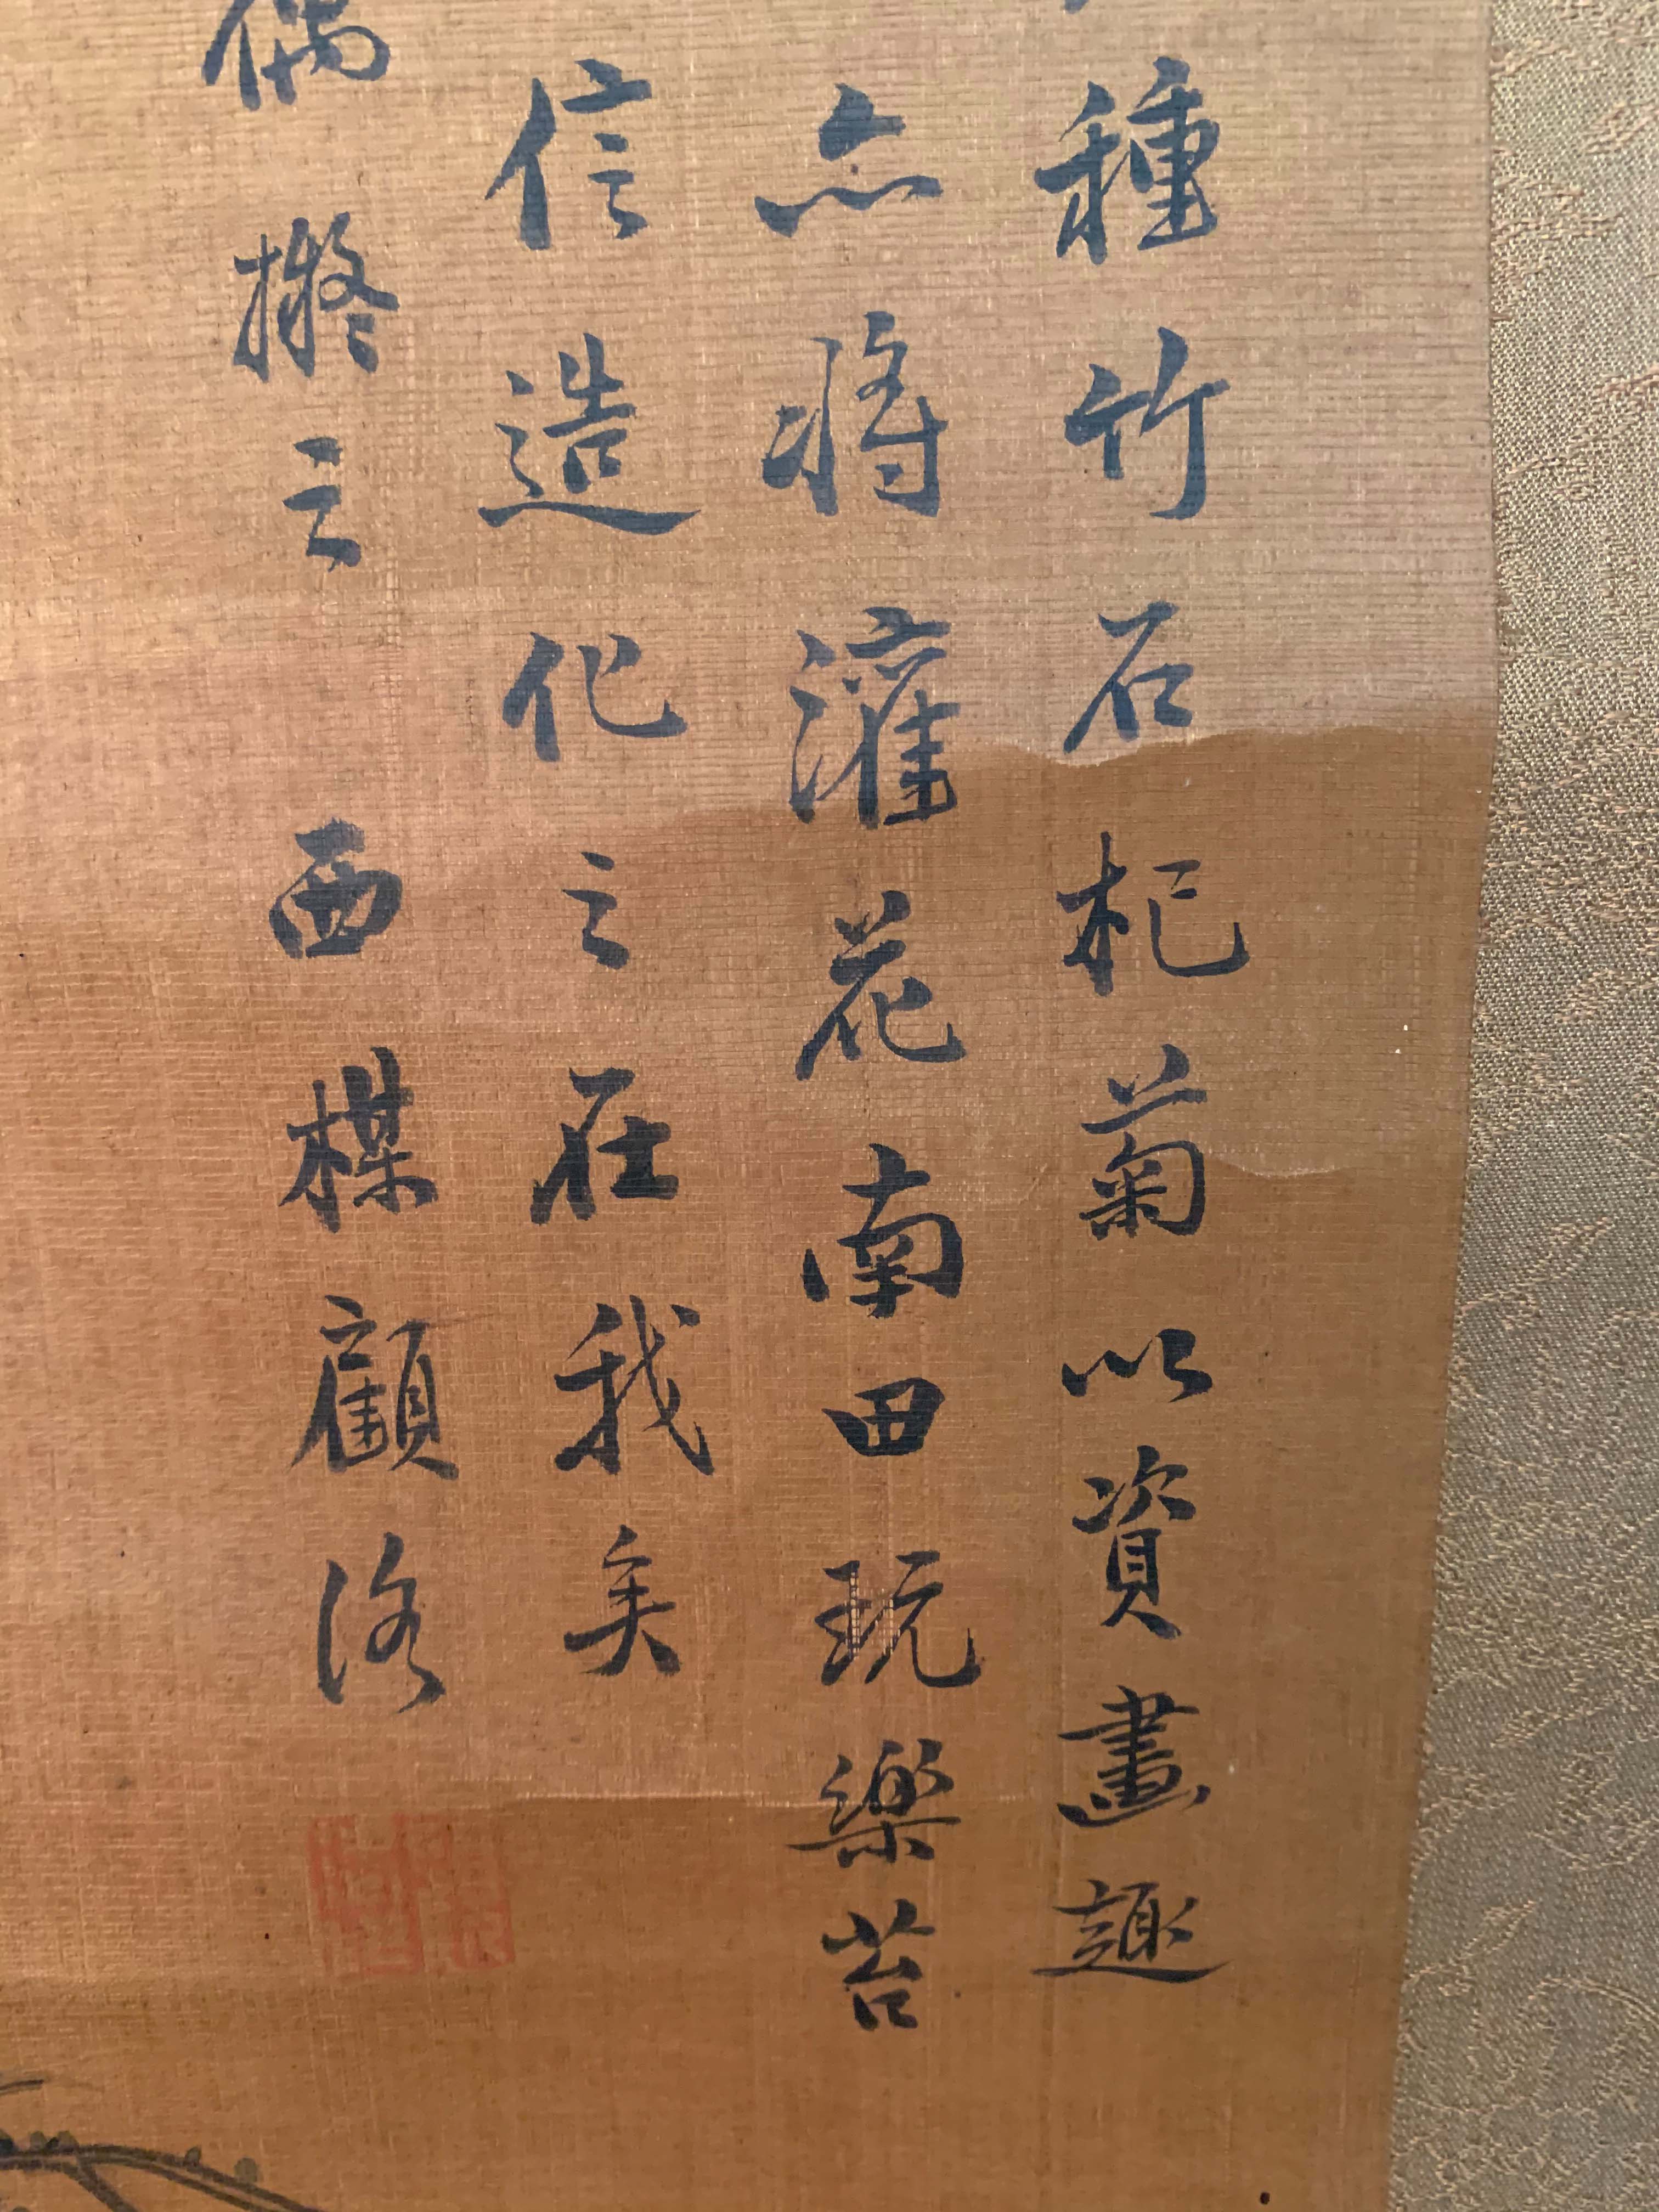 種竹石杞菊以資畫趣
亦將灌花南田玩樂苔
信造化之在我矣
偶擬之 西楳顧洛